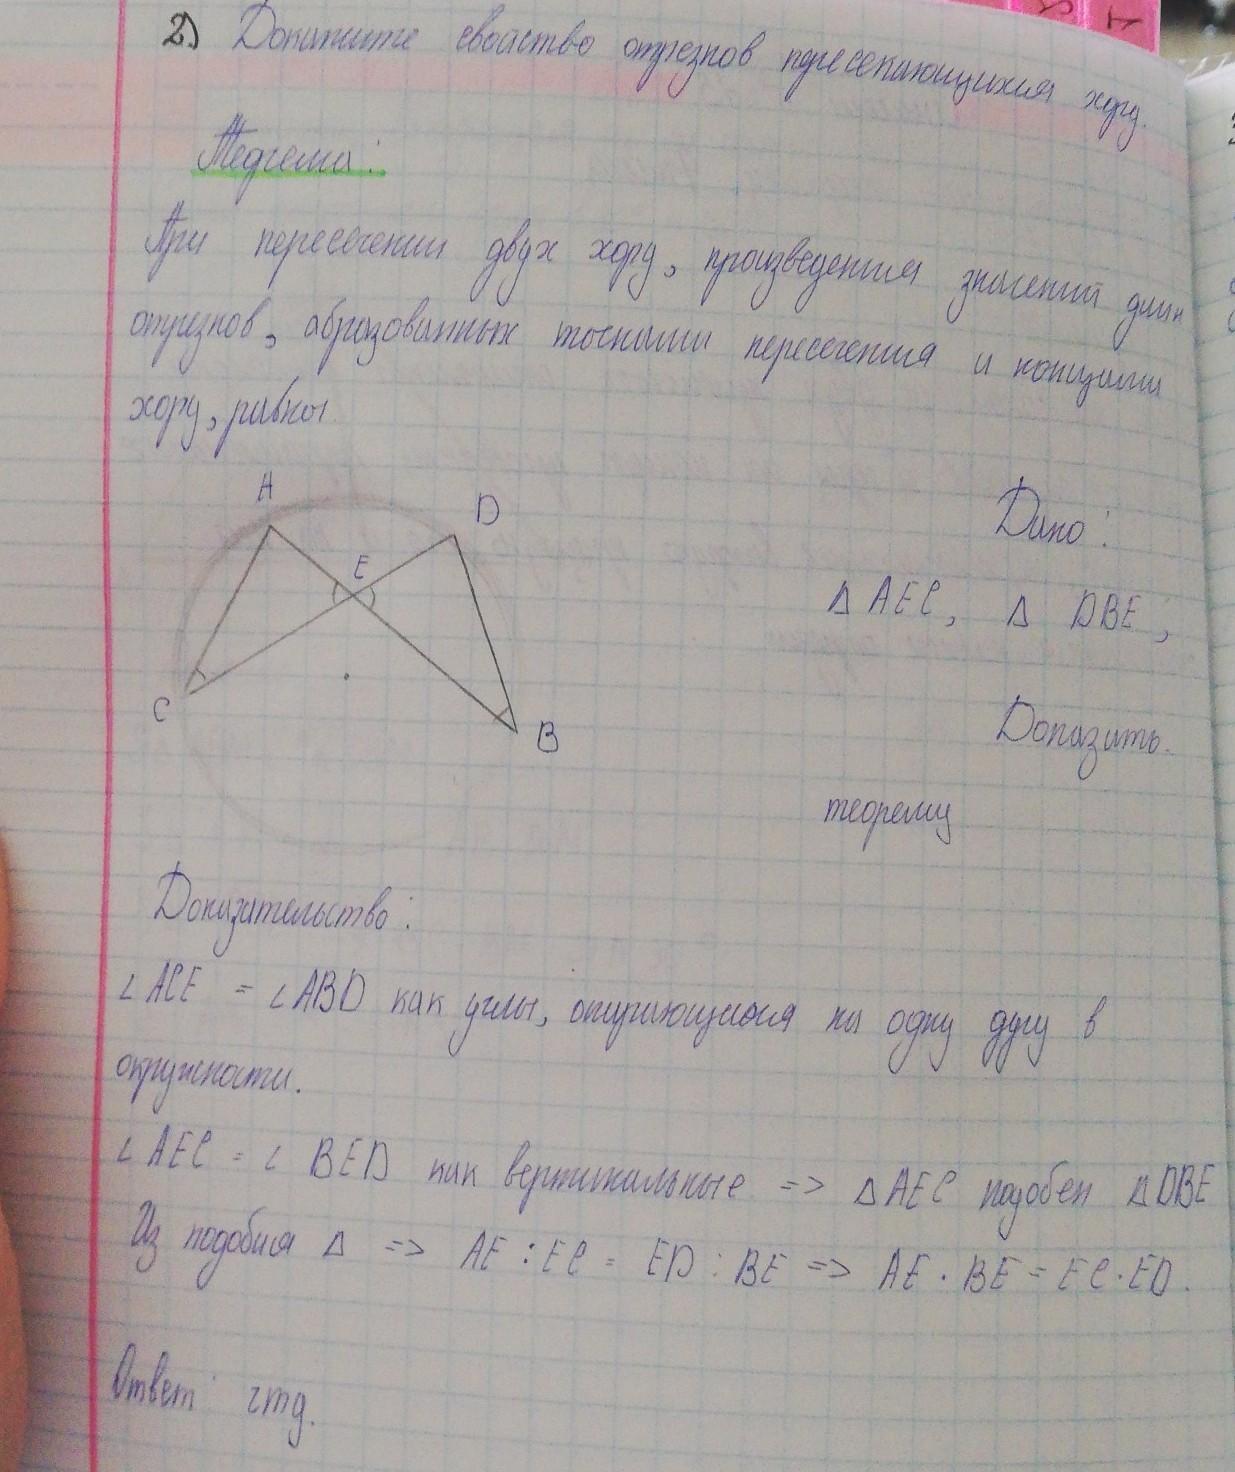 2.) Докажите свойство отрезков пересекающихся хорд.
Теорема:
При пересечении двух хорд, произведения значений длин
отрезков, образованных точками пересечения и концами
хорд, равны
A
D
E
C
B
Дано:
Δ AEC, Δ DBE;
Доказать.
теорему
Доказательство:
∠ ACE = ∠ ABD как углы, опирающиеся на одну дугу в
окружности.
∠ AEC = ∠ BED как вертикальные => Δ AEC подобен Δ DBE
Из подобия Δ => AE : EC = ED : BE => AE · BE = EC · ED.
Ответ: чтд.